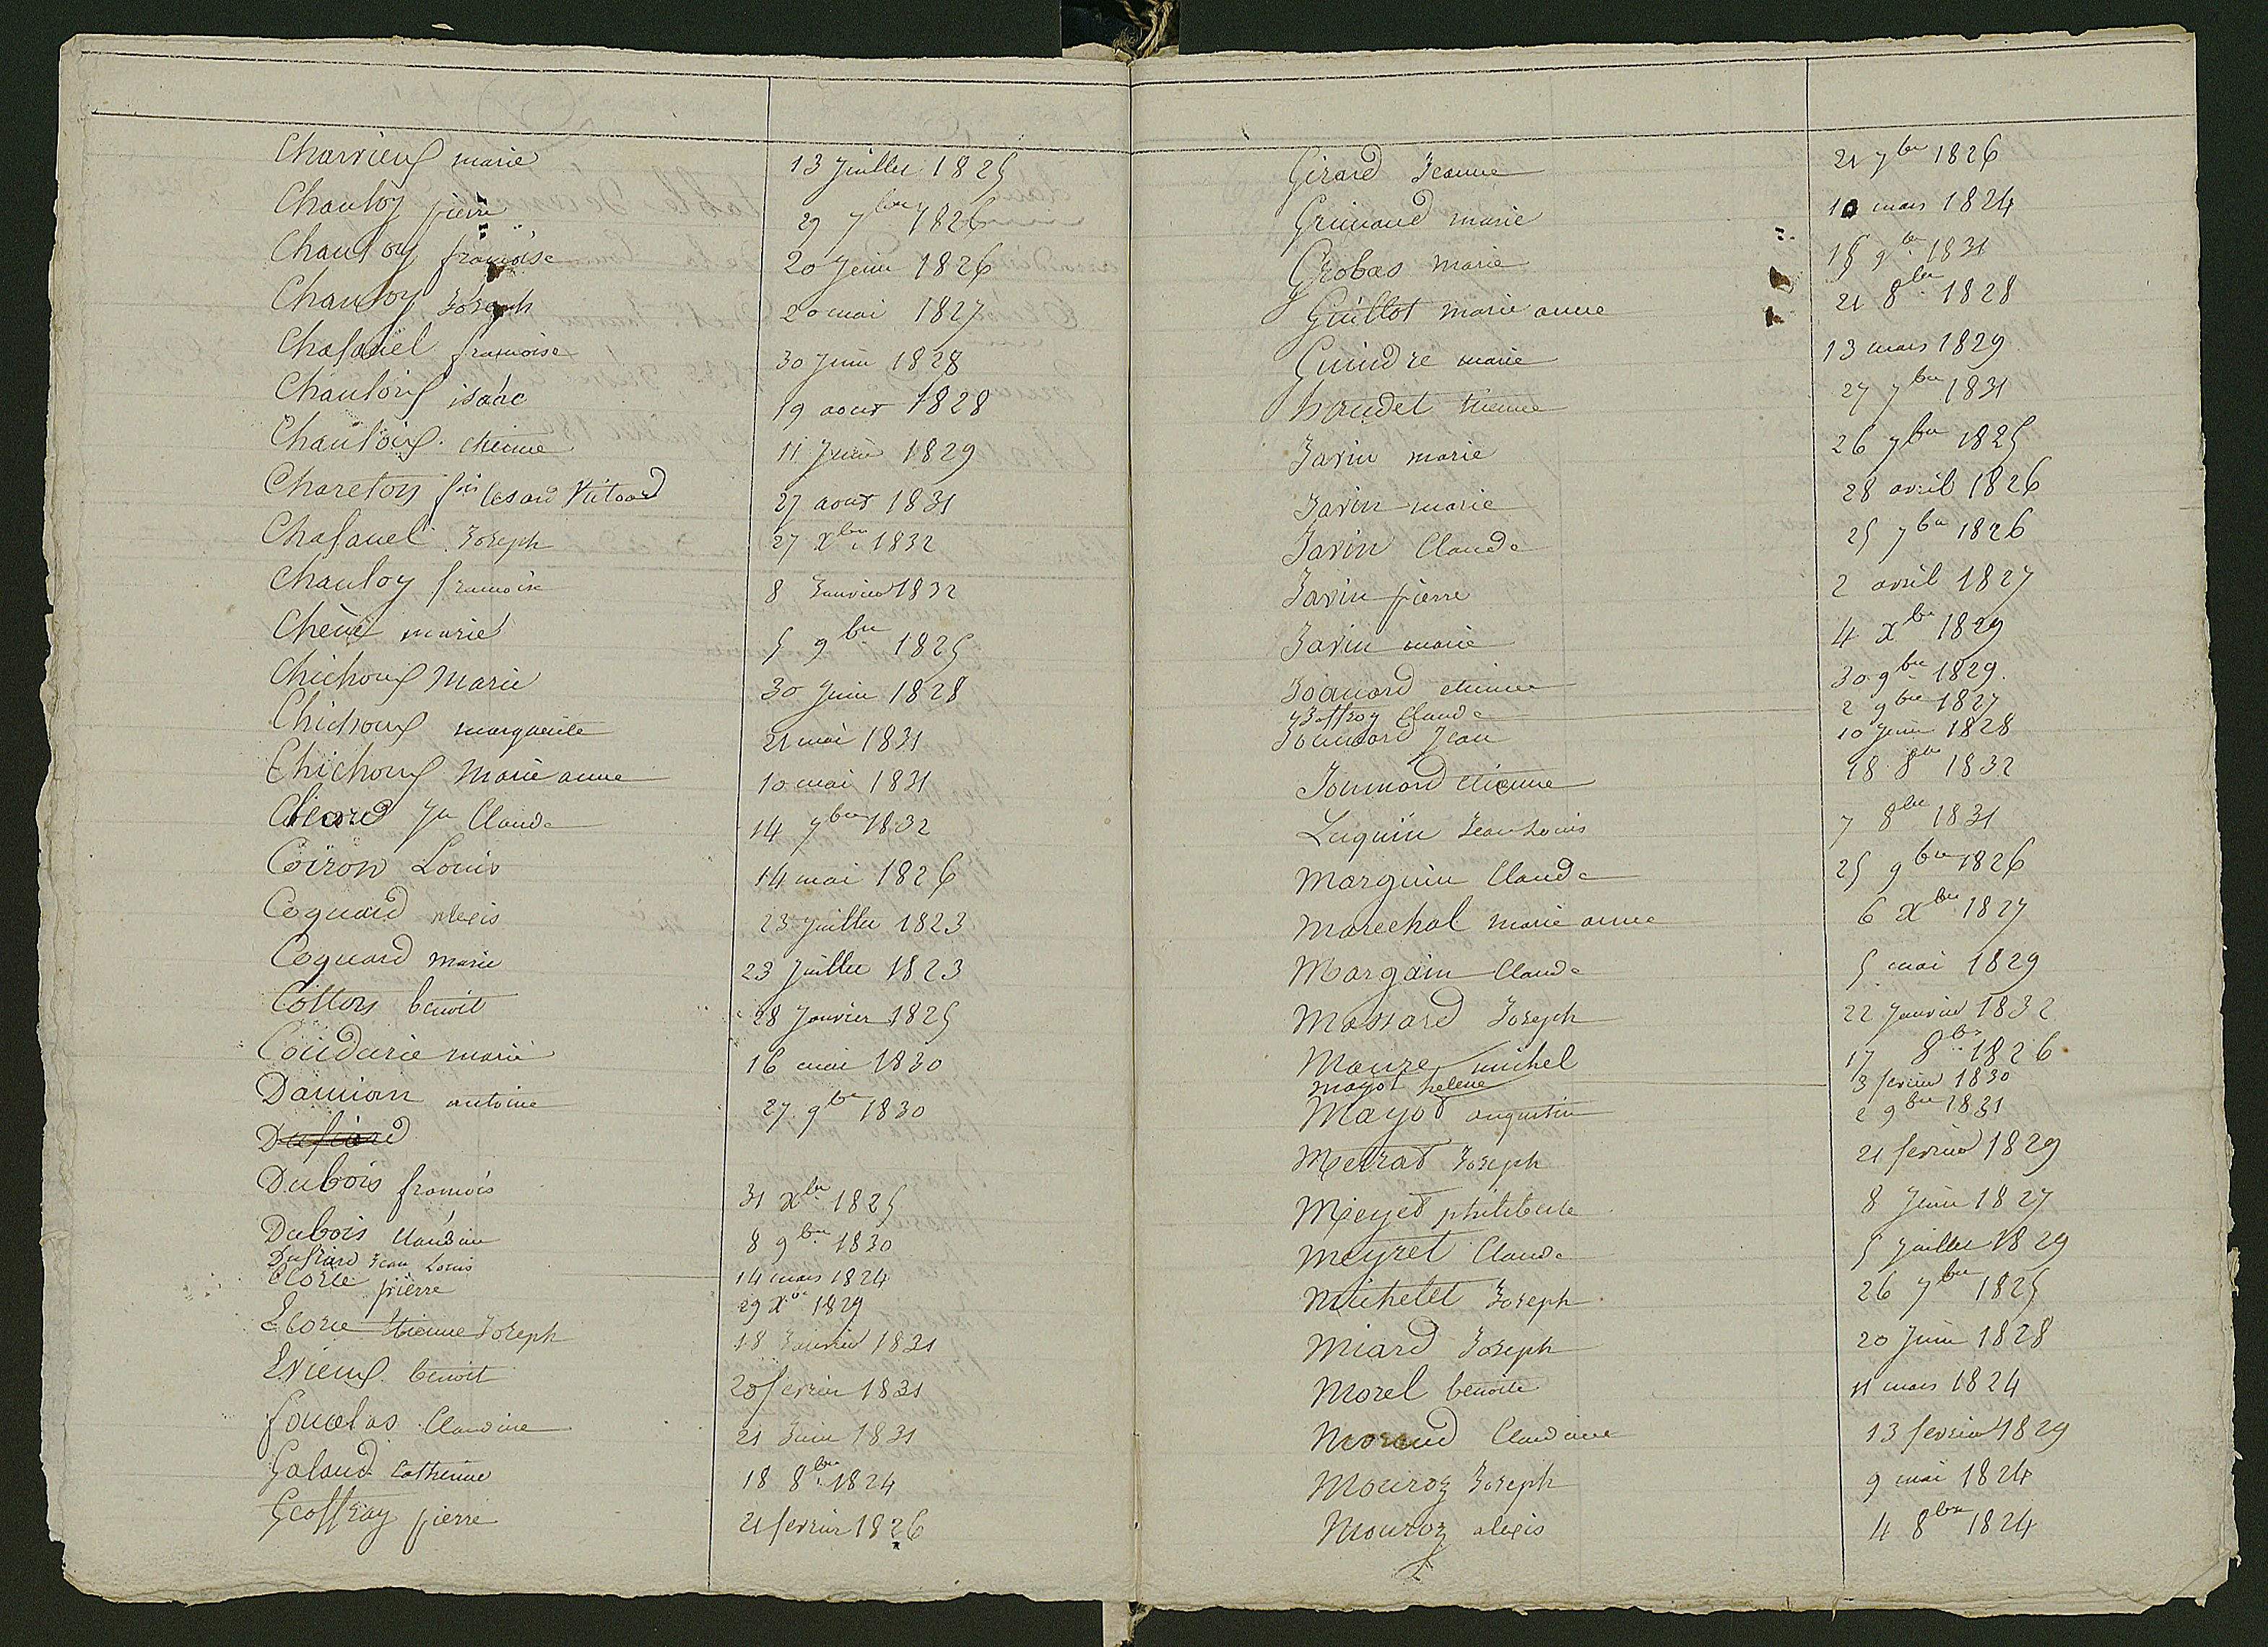 Charrieux marie 13 Juillet 1825
Chauloy pierre 29 7bre 1826
Chauloy françoise 20 Juin 1826
Chauloy Joseph 20 mai 1827
Chafanel françoise 30 Juin 1828
Chauloux isâac 19 aout 1828
Chauloix etienne 11 Juin 1829
Chareton 27 aout 1831
Chafanel Joseph 27 Xbre 1832
Chauloy francoise 8 Janvier 1832
Chêne marie 5 9bre 1825
Chichoux Marie 30 Juin 1828
Chichoux marguerite 21 mai 1831
Chichoux Marie anne 10 mai 1831
Jn Claude 14 7bre 1832
Coiron Louis 14 mai 1826
Coquard alexis 23 Juillet 1823
Coquard marie 23 Juillet 1823
Cotton benoit 28 Janvier 1825
Coudurie marie 16 mai 1830
Damian antoine 27 9bre 1830
Dufiard
Dubois francois 31 Xbre 1825
Dubois Claudine 8 9bre 1830
Dufiard Jean Louis 14 mars 1824
Ecorie pierre 29 Xbre 1829
Ecorie etienne Joseph 18 Janvier 1831
Evieux benoit 20 fevrier 1831
foucelas Claudine 21 Juin 1831
Galaud Catherine 18 8bre 1824
Geoffray pierre 21 fevrier 1826
Girard Jeanne 21 7bre 1826
Grimaud marie 10 mars 1824
Grobas marie 15 9bre 1831
Guillot marie anne 21 8bre 1828
Guindre marie 13 mars 1829
houdet etienne 27 7bre 1831
Javin marie 26 7bre 1825
Javin marie 28 avril 1826
Javin Claude 25 7bre 1826
Javin pierre 2 avril 1827
Javin marie 4 Xbre 1829
Joanard etienne 30 9bre 1829.
Joffroy Claude 2 9bre 1827
Joumard Jean 10 Juin 1828
Joumard etienne 18 8bre 1832
Luquin Jean Louis 7 8bre 1831
Marguin Claude 25 9bre 1826
Marechal marie anne 6 Xbre 1827
Margain Claude 5 mai 1829
Massard Joseph 22 Janvier 1832
Maure michel 17 8bre 1826
mayot helene 3 fevrier 1830
Mayot augustin 2 9bre 1831
Merrat Joseph 21 fevrier 1829
Meyet philiberte 8 Juin 1827
Meyret Claude 5 Juillet 1829
Michelet Joseph 26 7bre 1825
Miard Joseph 20 Juin 1828
Morel benoite 11 mars 1824
Morand Claudine 13 fevrier 1829
Mouroz Joseph 9 mai 1824
Mouroz alexis 4 8bre 1824